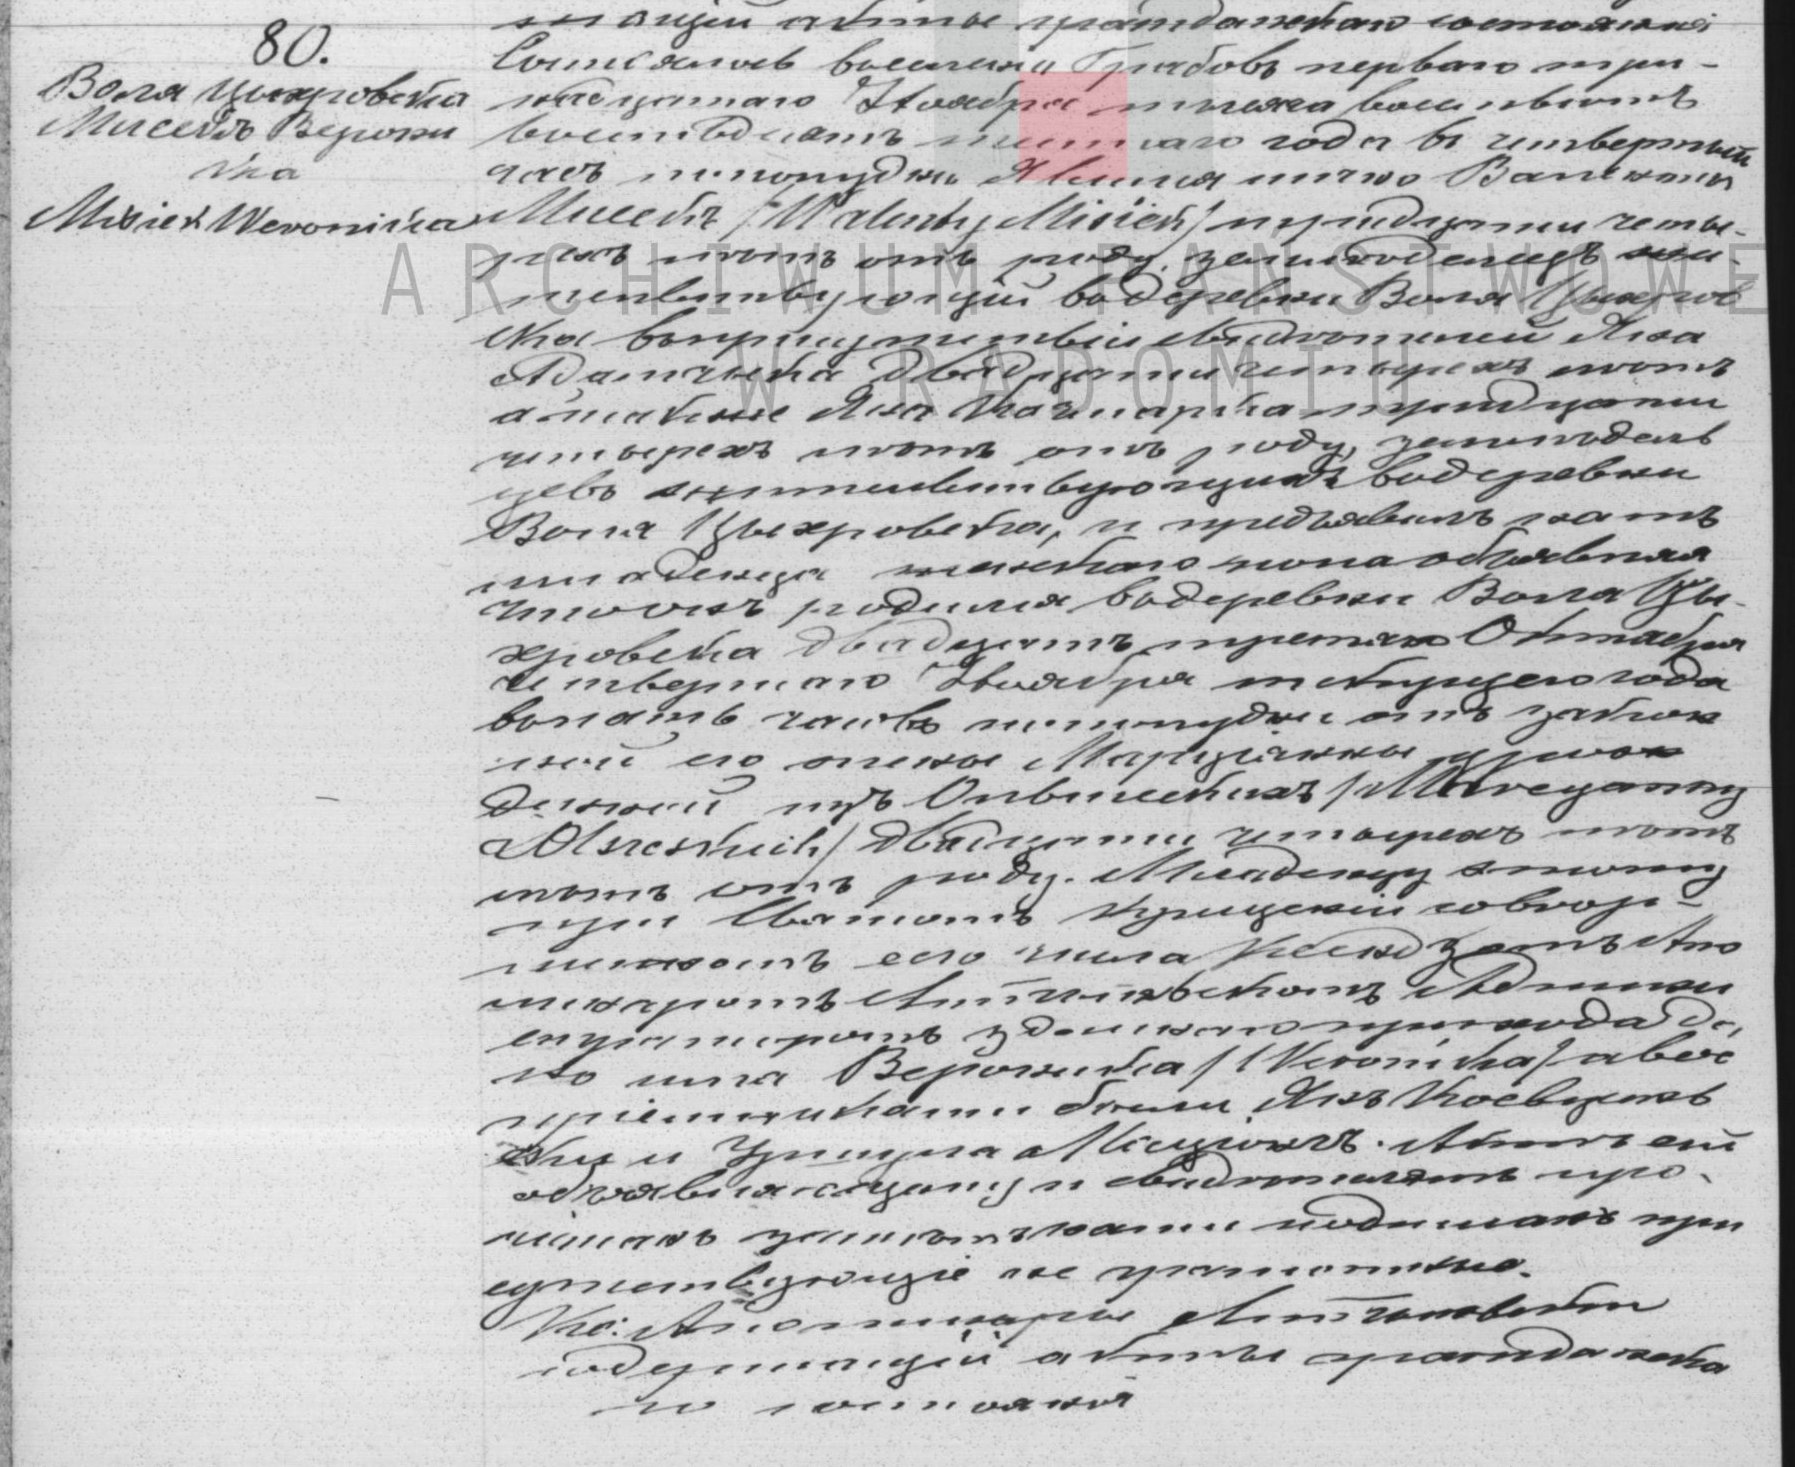 80.
Воля Цыхровска
Мисёкъ Верони
ка
Misiek Weronika
актье гражданскаго состояния
Состоялось въ селении Грабовъ перваго три-
надцатаго Ноября тысяча восемьсотъ
восемьдесятъ года въ четвертый
часъ пополудни Явился лично Валентый
Мисёкъ /Walenty Misiek/ тридцати четы-
рехъ лѣтъ отъ роду, земледелецъ жи-
тельствующий въ деревни Воля Цыхров
ска въ присутствіи свидѣтелей Яна
Адамчыка двадцати четырехъ лѣтъ
а также Яна Качмарка тридцати
четырехъ лѣтъ отъ роду, земледель
цевъ жительствующихъ въ деревни
Воля Цыхровска, и предъявилъ намъ
младенца женскаго пола объявляя
что онъ родился въ деревни Воля Цы-
хровска двадцать третьяго Октября
четвертаго Ноября текущего года
въ пять часовъ пополудни отъ закон
ной его жены Марцыянны урож
денной изъ Ольшескихъ /Marcyanny
z Olszeskich/ двадцати четырехъ лѣтъ
лѣтъ отъ роду. Младенцу этому
при Святомъ Крещении совер-
шенномъ его числа Ксендзомъ Апо
линаромъ Админи
страторомъ здешнаго прихода да,
но имя Вероника /Weronika/ а вос
пріемниками были Янъ
ски и Уршула. Актъ сей
объявляющему и свидѣтелямъ про-
читанъ нами подписанъ при
сутствующіе не грамотные.
Кс: Аполинары
содержащій акты гражданска
го состояния